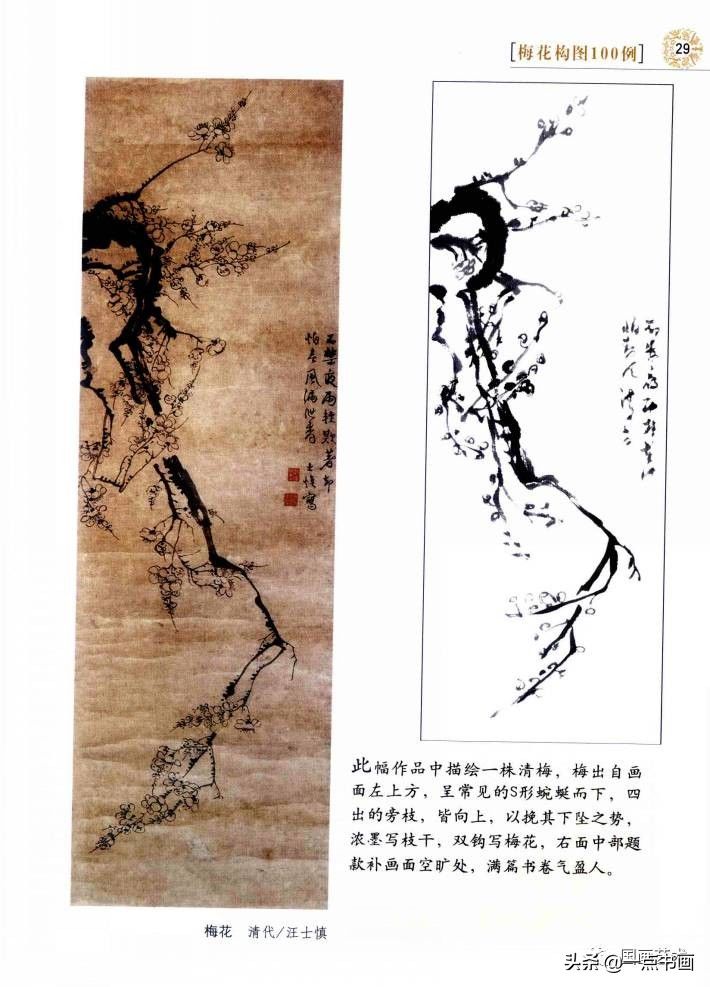 [梅花构图100例]
29
士慎寫
此幅作品中描绘一株清梅，梅出自画
面左上方，呈常见的S形蜿蜒而下，四
出的旁枝，皆向上，以挽其下坠之势，
浓墨写枝干，双钩写梅花，右面中部题
款补画面空旷处，满篇书卷气盈人。
梅花 清代/汪士慎
国画艺术
头条 @一点书画